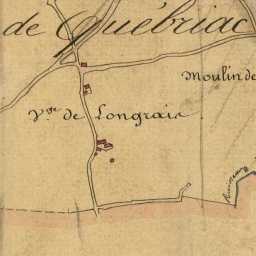 de Québriac
Moulin de
Vge de Longrais
Ruisseau